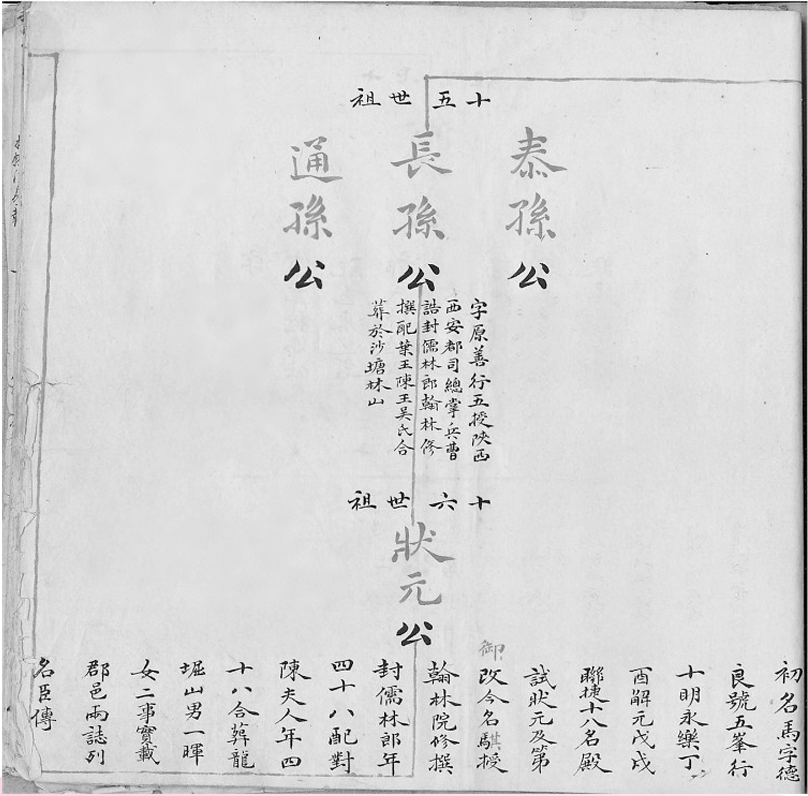 十五世祖
泰孫公
長孫公
通孫公
字原善行五授陝西
西安都司總掌兵曹
誥封儒林郎翰林修
撰配葉王陳王吳氏合
葬於沙塘林山
十六世祖
狀元公
初名馬字德
良號五峯行
十明永樂丁
酉解元戊戌
聯捷十八名殿
試狀元及第
御改今名騏授
翰林院修撰
封儒林郎年
四十八配對
陳夫人年四
十八合葬龍
堀山男一暉
女二事實載
郡邑兩誌列
名臣傳